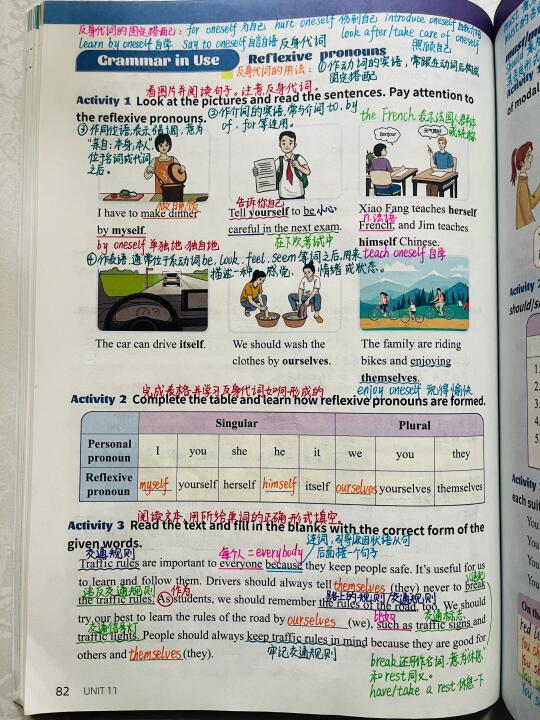 反身代词的固定搭配: for oneself 为自己 hurt oneself 伤到自己 introduce oneself 自我介绍
learn by oneself 自学 say to oneself 自言自语 look after/take care of oneself 照顾自己
反身代词
Grammar in Use Reflexive pronouns
反身代词的用法: ①作动词的宾语, 常跟在动词后构成固定搭配
看图片并阅读句子。注意反身代词。
Activity 1 Look at the pictures and read the sentences. Pay attention to
the reflexive pronouns.
②作介词的宾语, 常与介词 to, by
of, for 等连用。
③作同位语, 表示强调, 意为
"亲自; 本身, 本人",
位于名词或代词
之后。
the French 表示法国人
Bonjour
天气真好
做晚饭
I have to make dinner
by myself.
by oneself 单独地, 独自地
告诉你自己
Tell yourself to be 小心
careful in the next exam.
在下次考试中
Xiao Fang teaches herself
n.法语
French, and Jim teaches
himself Chinese.
teach oneself 自学
④作表语, 通常位于系动词 be, look, feel, seem 等词之后, 用来
描述一种感觉, 情绪或状态。
The car can drive itself.
We should wash the
clothes by ourselves.
The family are riding
bikes and enjoying
themselves.
enjoy oneself 玩得愉快
完成表格并学习反身代词如何形成的
Activity 2 Complete the table and learn how reflexive pronouns are formed.
Singular Plural
Personal pronoun I you she he it we you they
Reflexive pronoun myself yourself herself himself itself ourselves yourselves themselves
阅读文本, 用所给单词的正确形式填空。
Activity 3 Read the text and fill in the blanks with the correct form of the
given words.
连词, 引导原因状语从句
交通规则 每个人=everybody 后面接一个句子
Traffic rules are important to everyone because they keep people safe. It's useful for us
to learn and follow them. Drivers should always tell themselves (they) never to break
违反交通规则 作为 路上的规则/交通规则
the traffic rules. As students, we should remember the rules of the road, too. We should
try our best to learn the rules of the road by ourselves (we), such as traffic signs and
比如 交通标志
交通信号灯
traffic lights. People should always keep traffic rules in mind because they are good for
others and themselves (they).
牢记交通规则
break 还可作名词, 意为"休息"
和 rest 同义。
have/take a rest 休息一下
82 UNIT 11